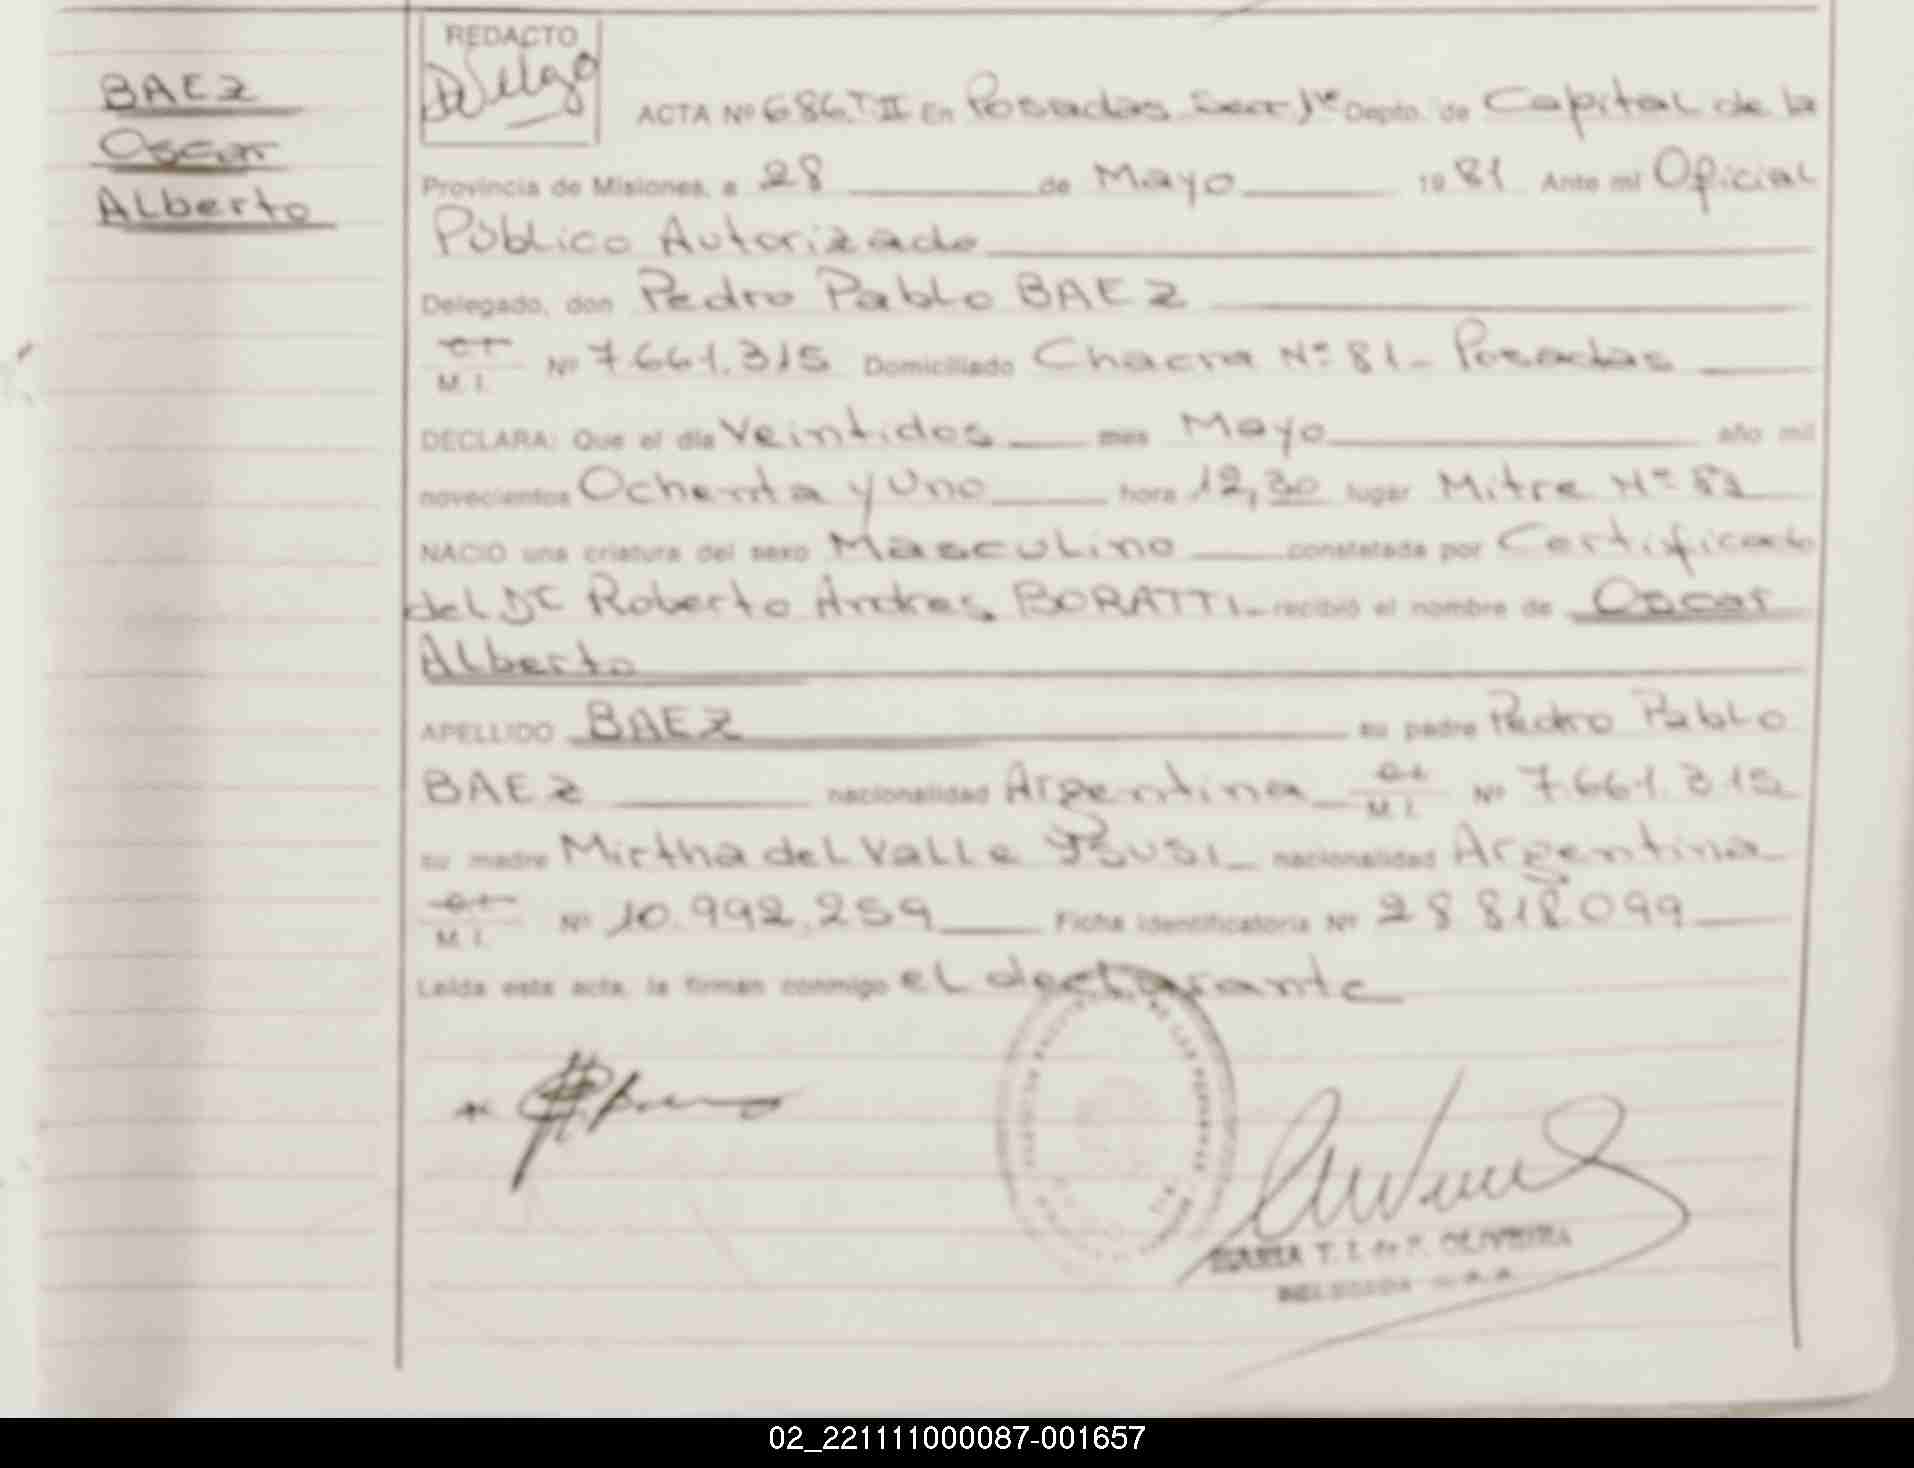 REDACTO
BAEZ
Oscar
Alberto
ACTA Nº 686. T II En Posadas Secc 1ra Depto. de Capital de la
Provincia de Misiones, a 28 de Mayo 1981 Ante mí Oficial
Público Autorizado
Delegado, don Pedro Pablo BAEZ
M. I. Nº 7.661.315 Domiciliado Chacra Nº 81- Posadas
DECLARA: Que el día Veintidos mes Mayo año mil
novecientos Ochenta y Uno hora 12,30 lugar Mitre Nº
NACIO una criatura del sexo Masculino constatada por Certificado
del Dr Roberto Andres BORATTI- recibió el nombre de Oscar
Alberto
APELLIDO BAEZ su padre Pedro Pablo
BAEZ nacionalidad Argentina M. I. Nº 7.661.315
su madre Mirtha del Valle nacionalidad Argentina
M. I. Nº 10.992.259 Ficha identificatoria Nº 28 818.099
Leída esta acta, la firman conmigo el declarante
MARIA T. I. de P. OLIVEIRA
02_221111000087-001657